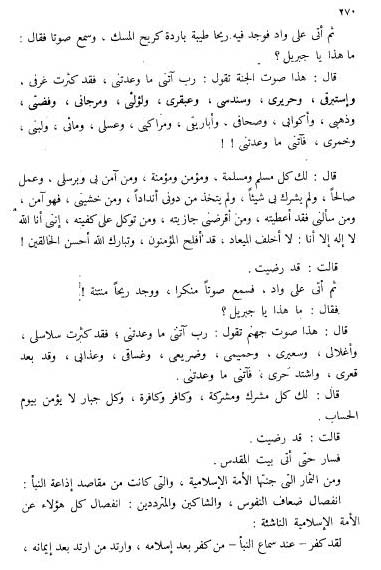 ٢٧٠
ثم أتى على واد فوجد فيه ريحا طيبة باردة كريح المسك ، وسمع صوتا فقال :
ما هذا يا جبريل ؟
قال : هذا صوت الجنة تقول : رب آتنى ما وعدتنى ، فقد كثرت غرفى ،
وإستبرقى ، وحريرى ، وسندسى ، وعبقرى ، ولؤلؤى ، ومرجانى ، وفضتى ،
وذهبى ، وأكوابى ، وصحافى . وأباريقى ، ومراكبى ، وعسلى ، ومائى ، ولبنى ،
وخمرى ، فآتنى ما وعدتنى ! !
قال : لك كل مسلم ومسلمة ، ومؤمن ومؤمنة ، ومن آمن بى وبرسلى ، وعمل
صالحاً ، ولم يشرك بى شيئاً ، ولم يتخذ من دونى أنداداً ، ومن خشينى ، فهو آمن ،
ومن سألنى فقد أعطيته ، ومن أقرضنى جازيته ، ومن توكل على كفيته ، إننى أنا الله
لا إله إلا أنا : لا أخلف الميعاد ، قد أفلح المؤمنون ، وتبارك الله أحسن الخالقين !
قالت : قد رضيت .
ثم أتى على واد . فسمع صوتاً منكرا ، ووجد ريحاً منتنة !
فقال : ما هذا يا جبريل ؟
قال : هذا صوت جهنم تقول : رب آتنى ما وعدتنى ؛ فقد كثرت سلاسلى ،
وأغلالى ، وسعيرى ، وحميمى ، وضريعى ، وغساقى ، وعذابى ، وقد بعد
قعرى ، واشتد حرى ، فآتنى ما وعدتنى .
قال : لك كل مشرك ومشركة ، وكافر وكافرة ، وكل جبار لا يؤمن بيوم
الحساب .
قالت : قد رضيت .
فسار حتى أتى بيت المقدس .
ومن الثمار التى جنتها الأمة الإسلامية ، والتى كانت من مقاصد إذاعة النبأ :
انفصال ضعاف النفوس ، والشاكين والمترددين : انفصال كل هؤلاء عن
الأمة الإسلامية الناشئة :
لقد كفر – عند سماع النبأ – من كفر بعد إسلامه ، وارتد من ارتد بعد إيمانه ،